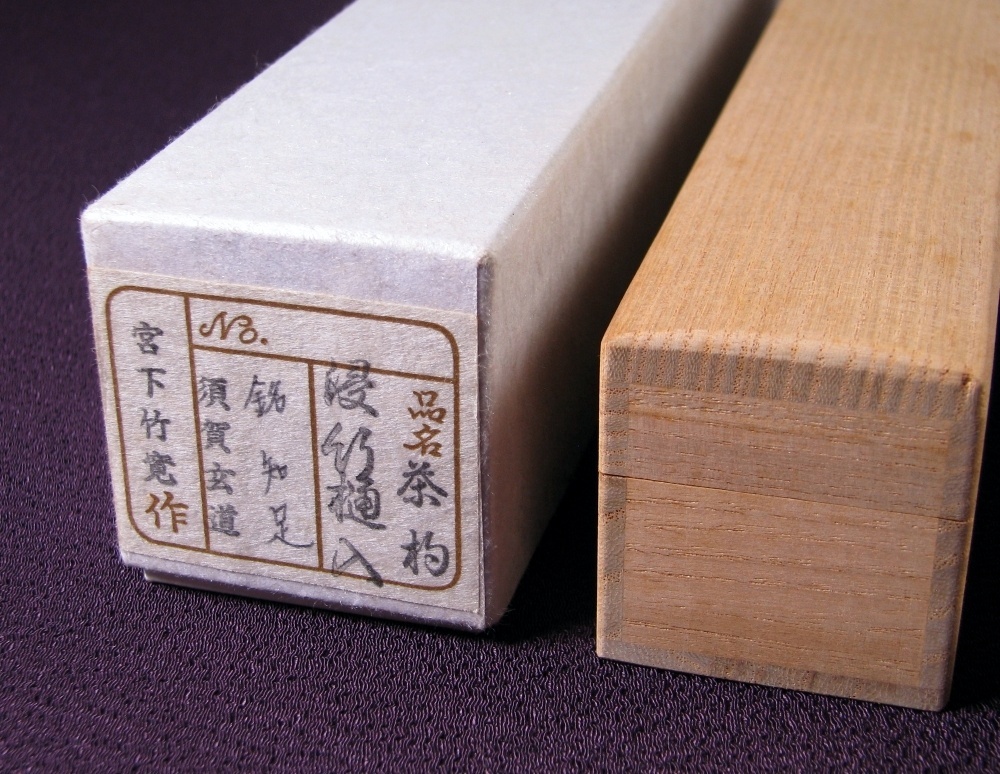 No.
品名 茶杓
浸竹樋入
銘 知足
須賀玄道
宮下竹寛作